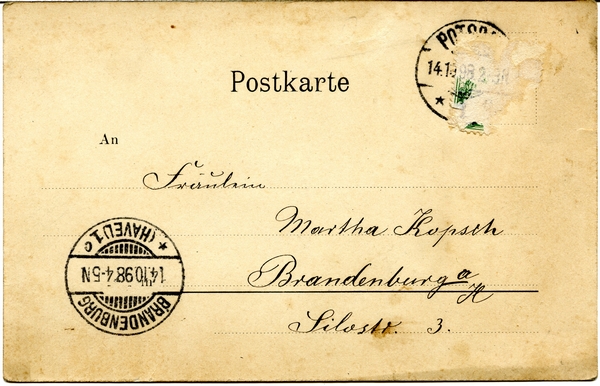 POTSD
14.10.98 2
Postkarte
An
Fräulein
Martha Kopsch
Brandenburg a/H
Silostr. 3.
BRANDENBURG
14.10.98·4-5N
* (HAVEL) 1 c